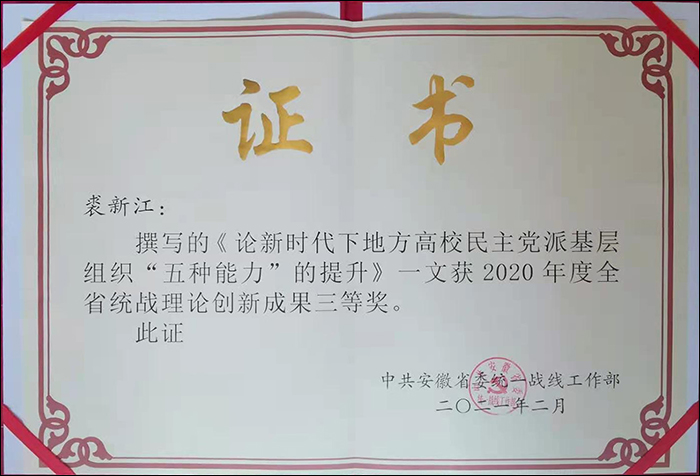 证书
裘新江：
撰写的《论新时代下地方高校民主党派基层
组织“五种能力”的提升》一文获 2020 年度全
省统战理论创新成果三等奖。
此证
中共安徽省委统一战线工作部
二〇二一年二月